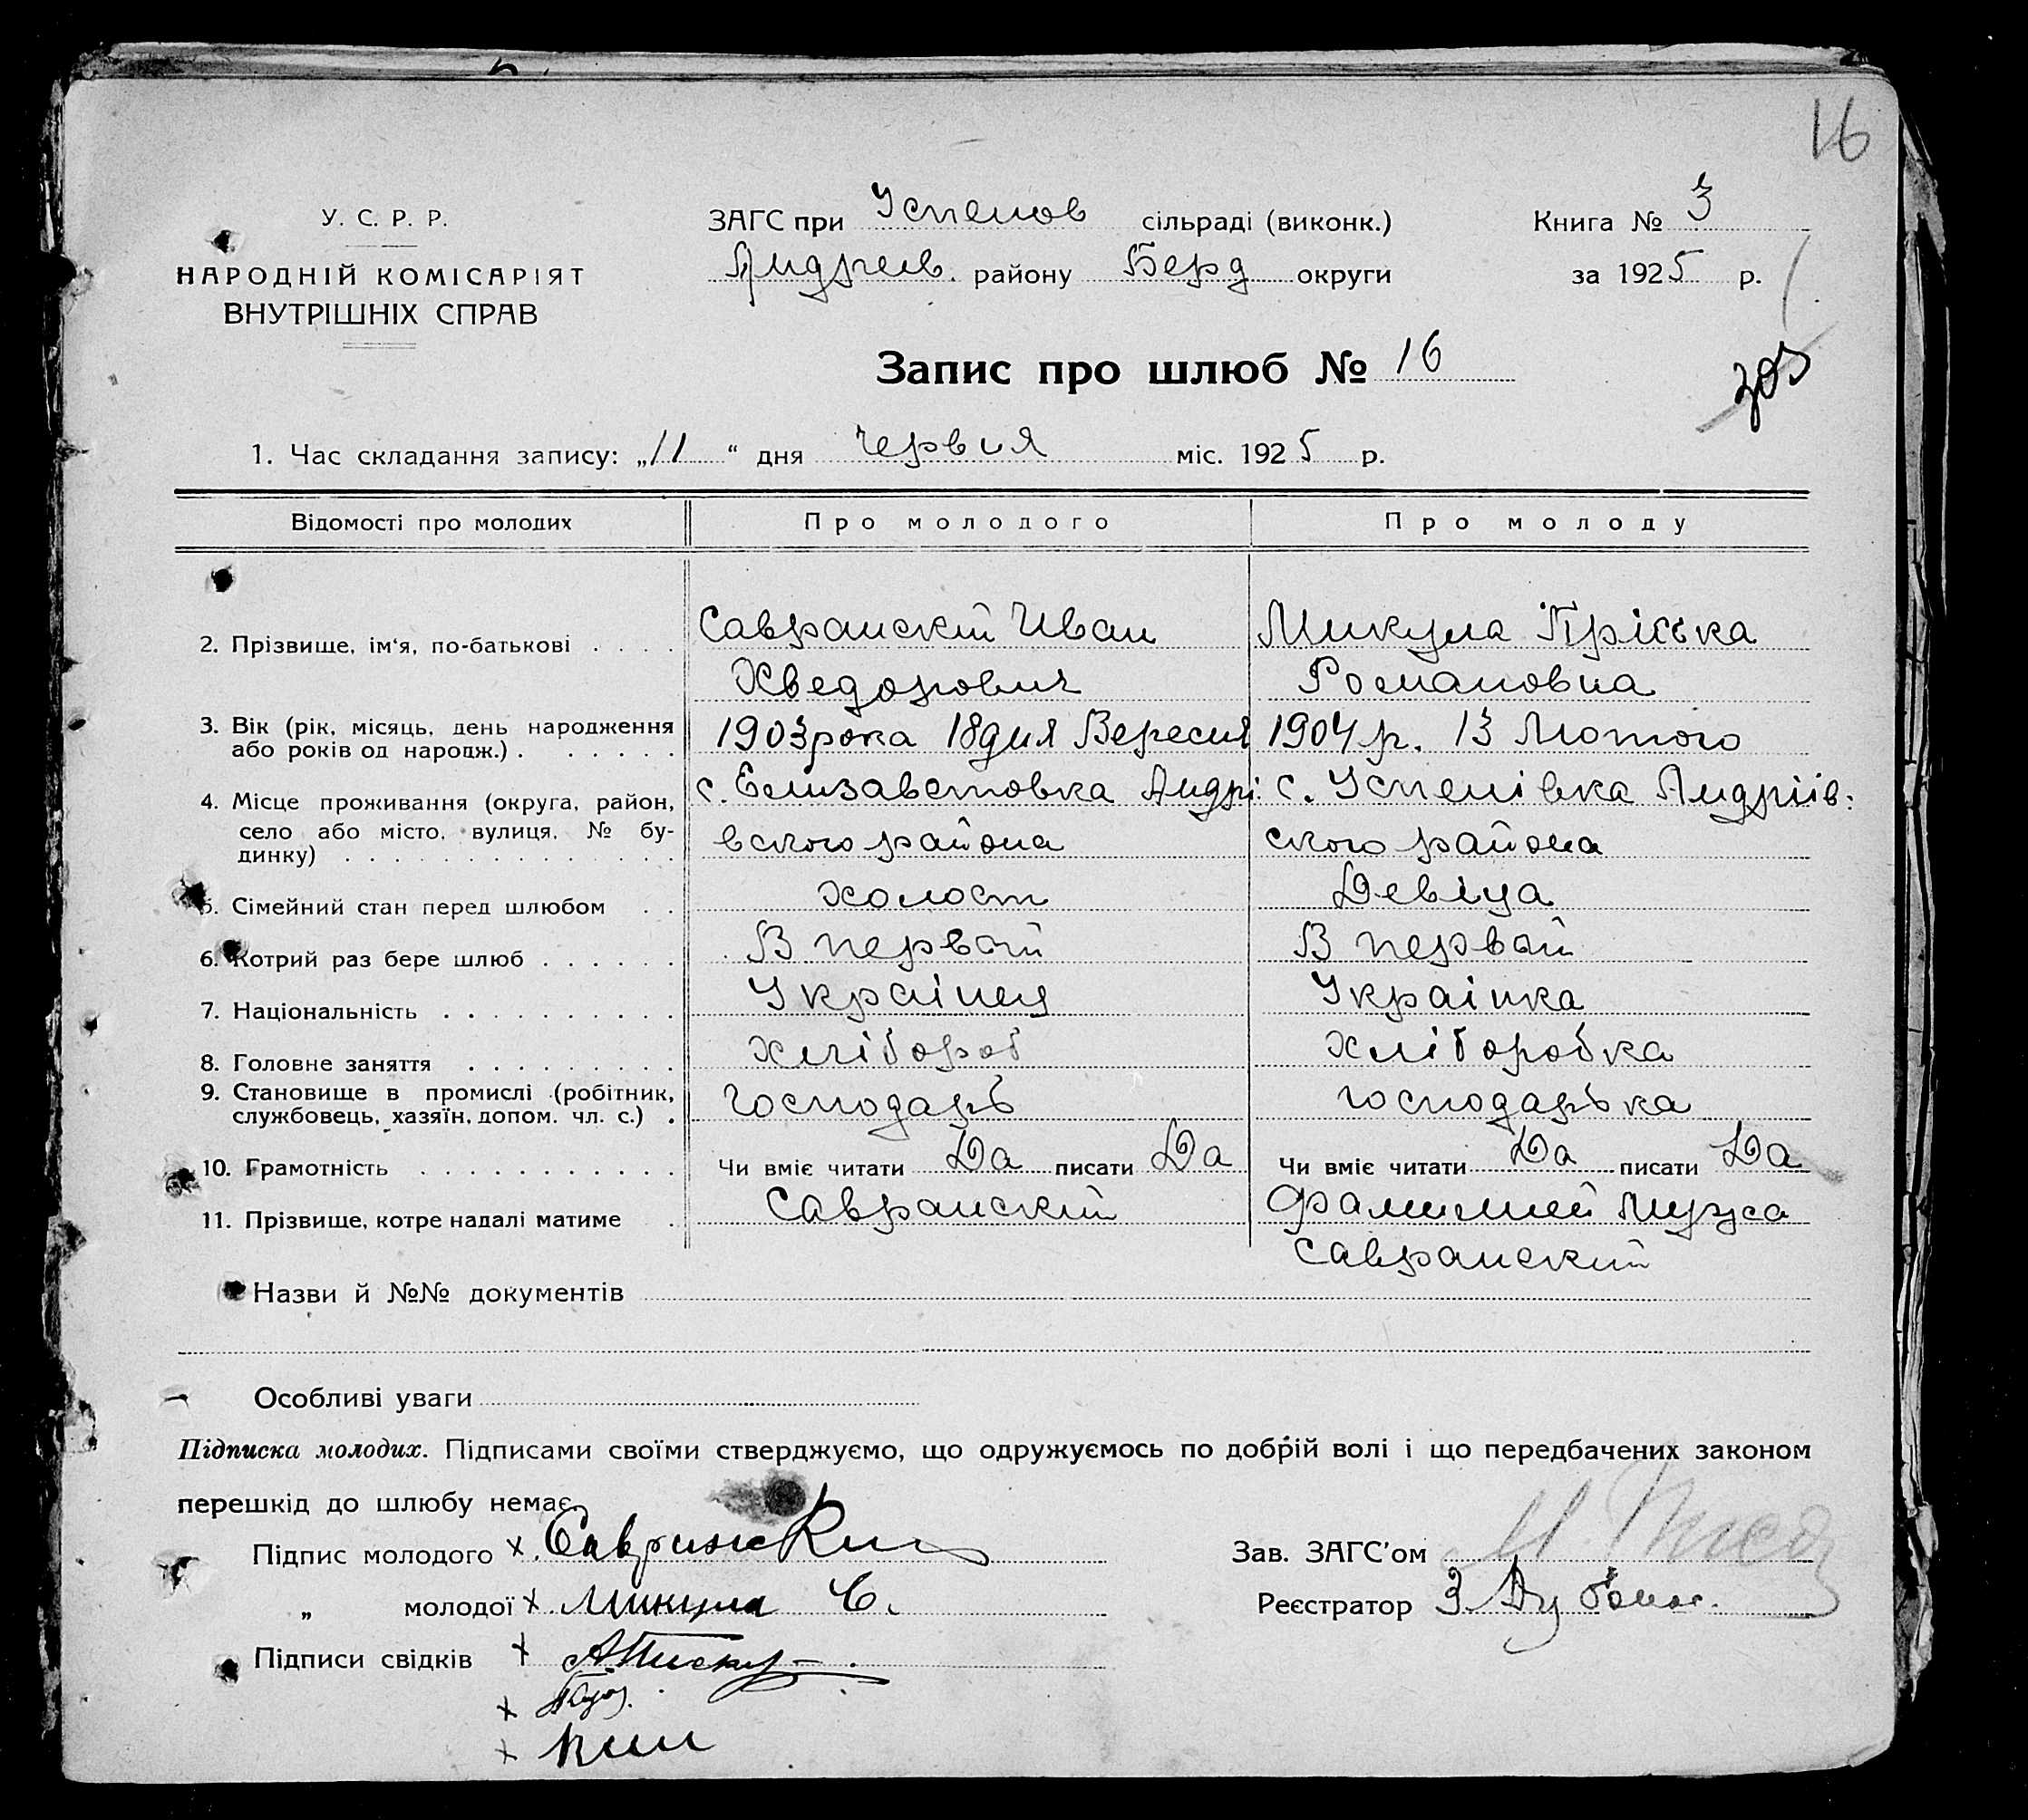 16
У. С. Р. Р.
НАРОДНІЙ КОМІСАРІЯТ
ВНУТРІШНІХ СПРАВ
ЗАГС при Успенов сільраді (виконк.)
Андреев. району Берд округи
Книга № 3
за 1925 р.
Запис про шлюб № 16
1. Час складання запису: „11“ дня Червня міс. 1925 р.
Відомості про молодих Про молодого Про молоду
2. Прізвище, ім'я, по-батькові . . . . Савранский Иван Микула Пріська
Хведорович Романовна
3. Вік (рік, місяць, день народження 1903 рока 18 дня Вересня 1904 р. 13 Лютого
або років од народж.) . . . . . .
4. Місце проживання (округа, район, с. Елизаветовка Андрі: с. Успенівка Андріів:
село або місто, вулиця, № бу- вского района ского района
динку) . . . . . . . . . . . . . .
5. Сімейний стан перед шлюбом . . холост Девіца
6. Котрий раз бере шлюб . . . . . . В первый В первый
7. Національність . . . . . . . . . . Украінец Украінка
8. Головне заняття . . . . . . . . . хлібороб хліборобка
9. Становище в промислі (робітник, господарь господарька
службовець, хазяїн, допом. чл. с.) .
10. Грамотність . . . . . . . . . . . Чи вміє читати Да писати Да Чи вміє читати Да писати Да
11. Прізвище, котре надалі матиме . Савранский Фамилией Мужа
Савранский
Назви й №№ документів
Особливі уваги
Підписка молодих. Підписами своїми стверджуємо, що одружуємось по добрій волі і що передбачених законом
перешкід до шлюбу немає.
Підпис молодого х Савранский
„ молодої х Микула Є.
Підписи свідків х
х
х
Зав. ЗАГС'ом
Реєстратор